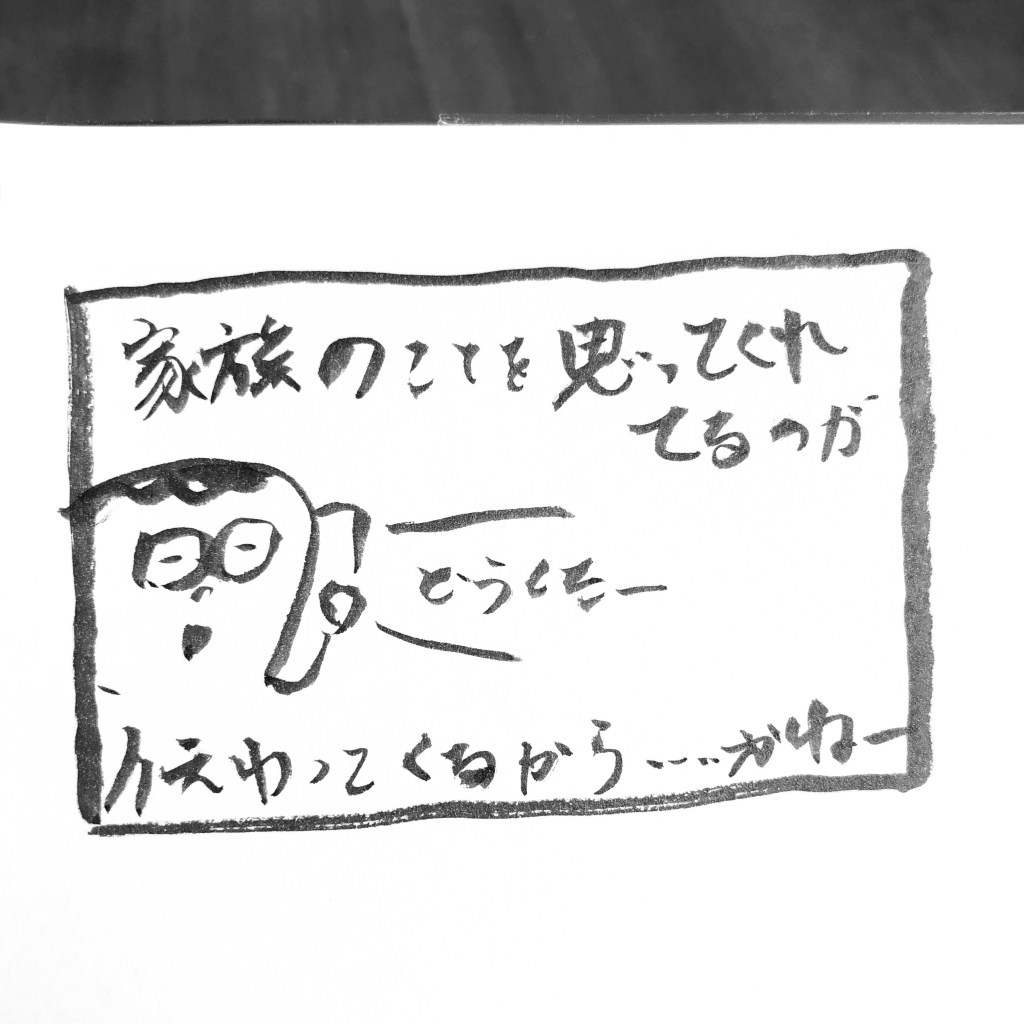 家族のことを思ってくれ
てるのが
どうくたー
伝わってくるから……がねー